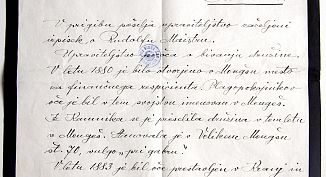 V prigibu pošilja upraviteljstvo zaželjeni
izpisek, o Rudolfu Maistru.
Upraviteljstvo o bivanju družine.
V letu 1880 je bilo otvorjeno v Mengšu mesto
za finančnega respicienta
oče je bil v tem svojstvu imenovan v Mengeš.
Iz Kamnika se je preselila družina v tem letu
v Mengeš. Stanovala je v Velikem Mengšu
št. 72, vulgo „pri gabru".
V letu 1883 je bil oče prestavljen v Kranj in